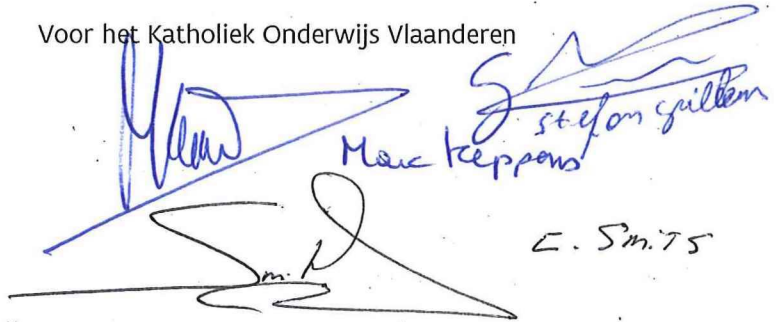 Voor het Katholiek Onderwijs Vlaanderen
Stefan Grillens
Marc Keppens
E. SmiTS